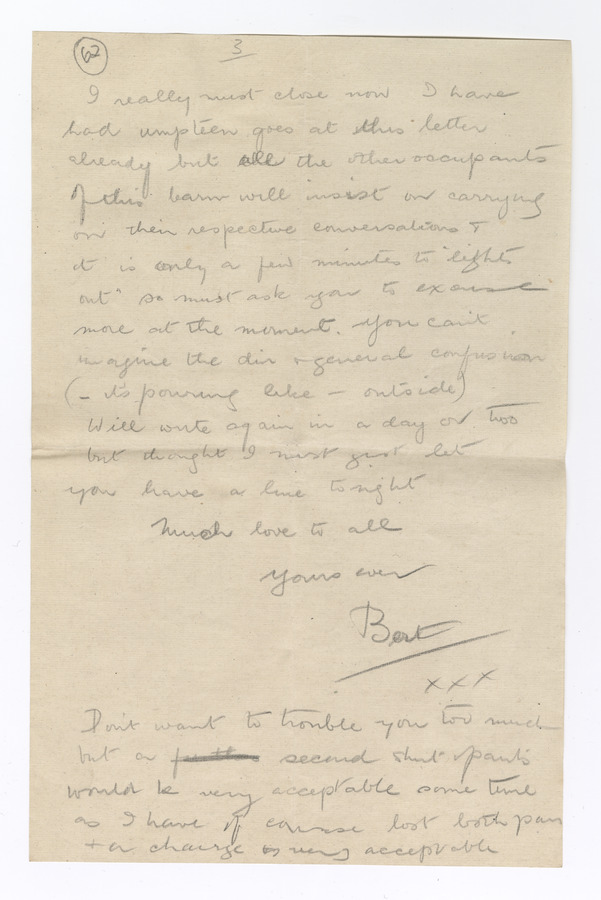 62
3
I really must close now I have
had umpteen goes at this letter
already but all the other occupants
of this barn will insist on carrying
on their respective conversations +
it is only a few minutes to "lights
out" so must ask you to excuse
more at the moment. You can't
imagine the din + general confusion
(- it's pouring like - outside)
Will write again in a day or too
but thought I must just let
you have a line tonight
Much love to all
Yours ever
Bert
xxx
Don't want to trouble you too much
but a second shirt + pants
would be very acceptable some time
as I have of course lost both pair
+ a change is very acceptable